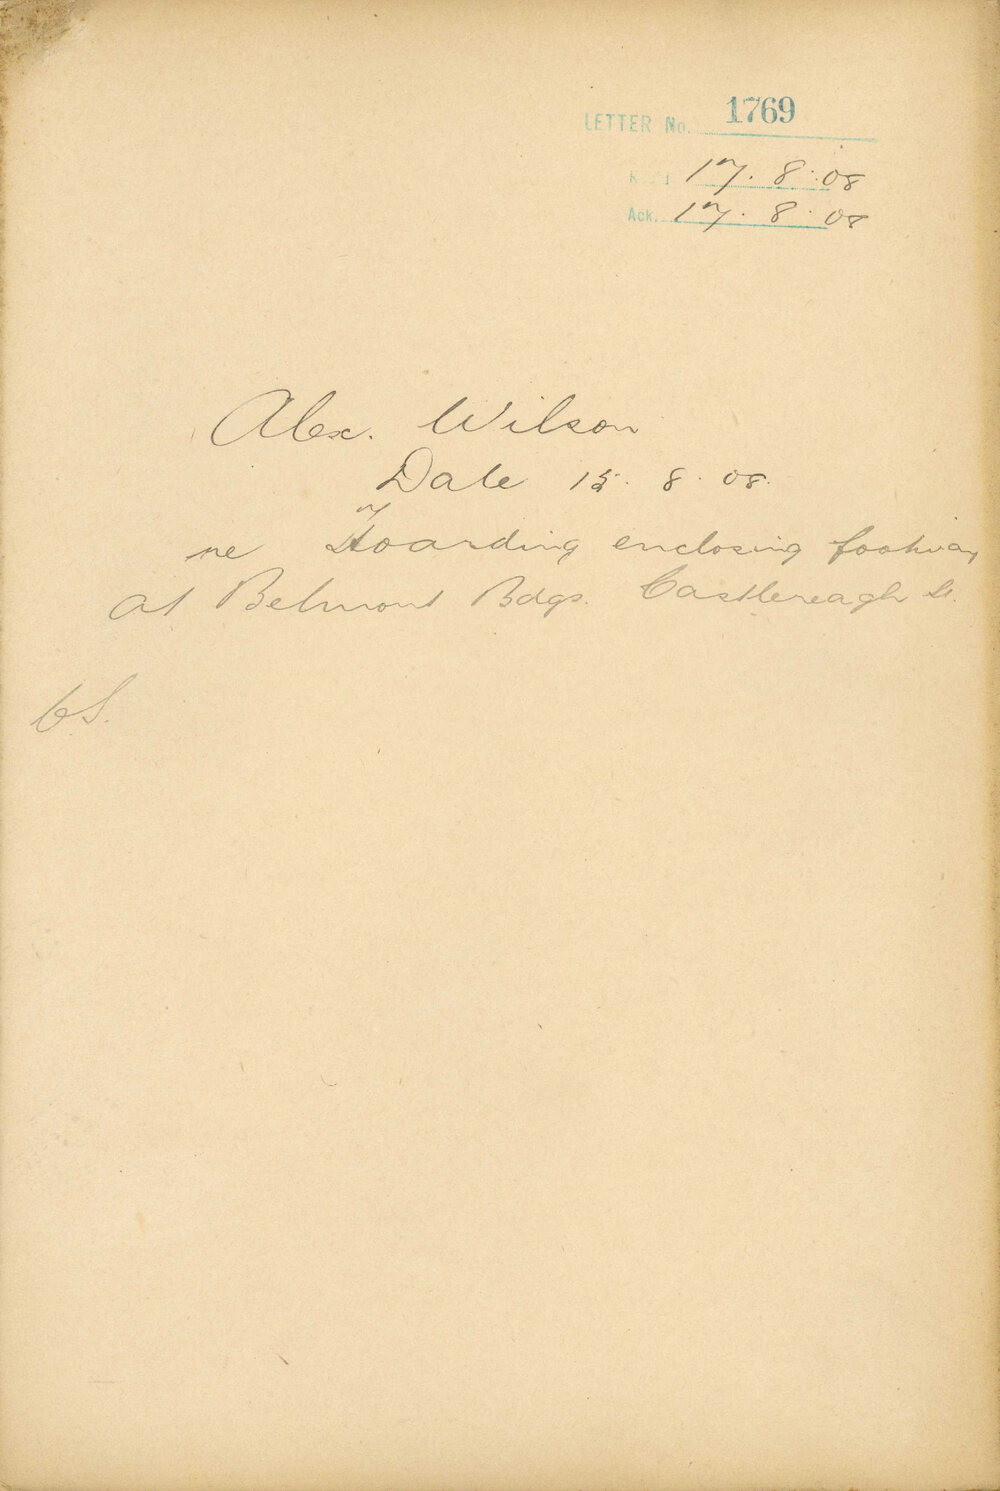 LETTER No. 1769
17. 8. 08
Ack. 17. 8. 08
Alex. Wilson
Date 15. 8. 08.
re Hoarding enclosing footway
at Belmont Bdgs. Castlereagh St.
CS.